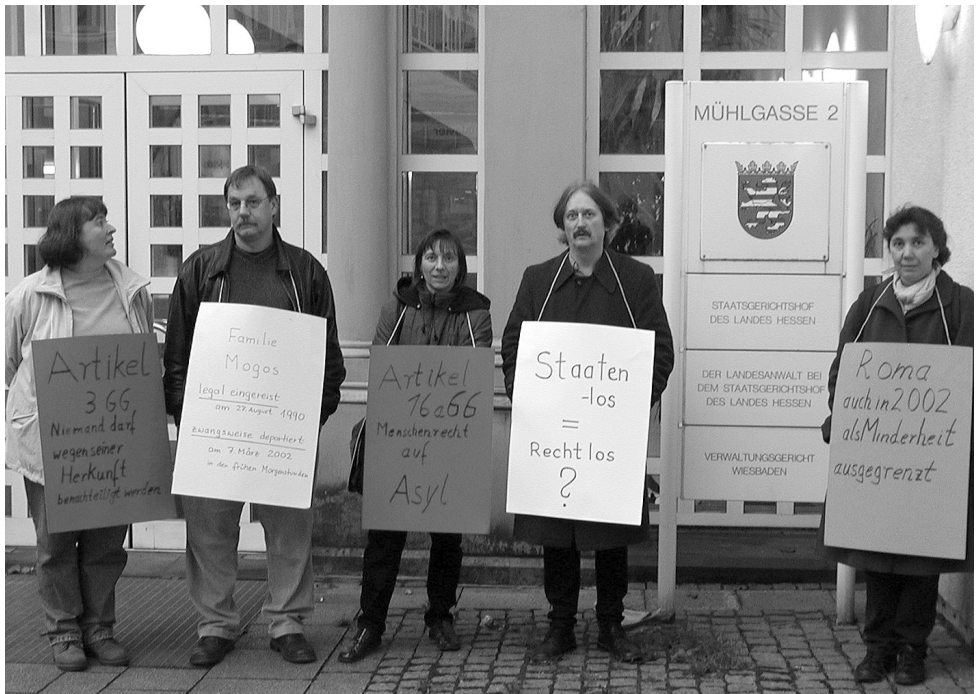 Artikel
3 GG
Niemand darf
wegen seiner
Herkunft
benachteiligt werden
Familie
Mogos
legal eingereist
am 27. August 1990
zwangsweise deportiert:
am 7. März 2002
in den frühen Morgenstunden
Artikel
16a GG
Menschenrecht
auf
Asyl
Staaten
-los
=
Rechtlos
?
MÜHLGASSE 2
STAATSGERICHTSHOF
DES LANDES HESSEN
DER LANDESANWALT BEI
DEM STAATSGERICHTSHOF
DES LANDES HESSEN
VERWALTUNGSGERICHT
WIESBADEN
Roma
auch in 2002
als Minderheit
ausgegrenzt